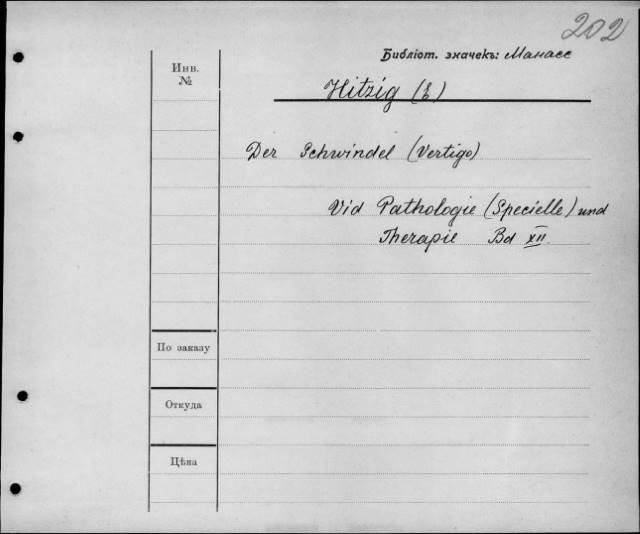 202
Библіот. значекъ: Манасс
Инв.
№
Hitzig (E)
Der Schwindel (Vertigo)
Vid Pathologie (Specielle) und
Therapie Bd XII.
По заказу
Откуда
Цѣна